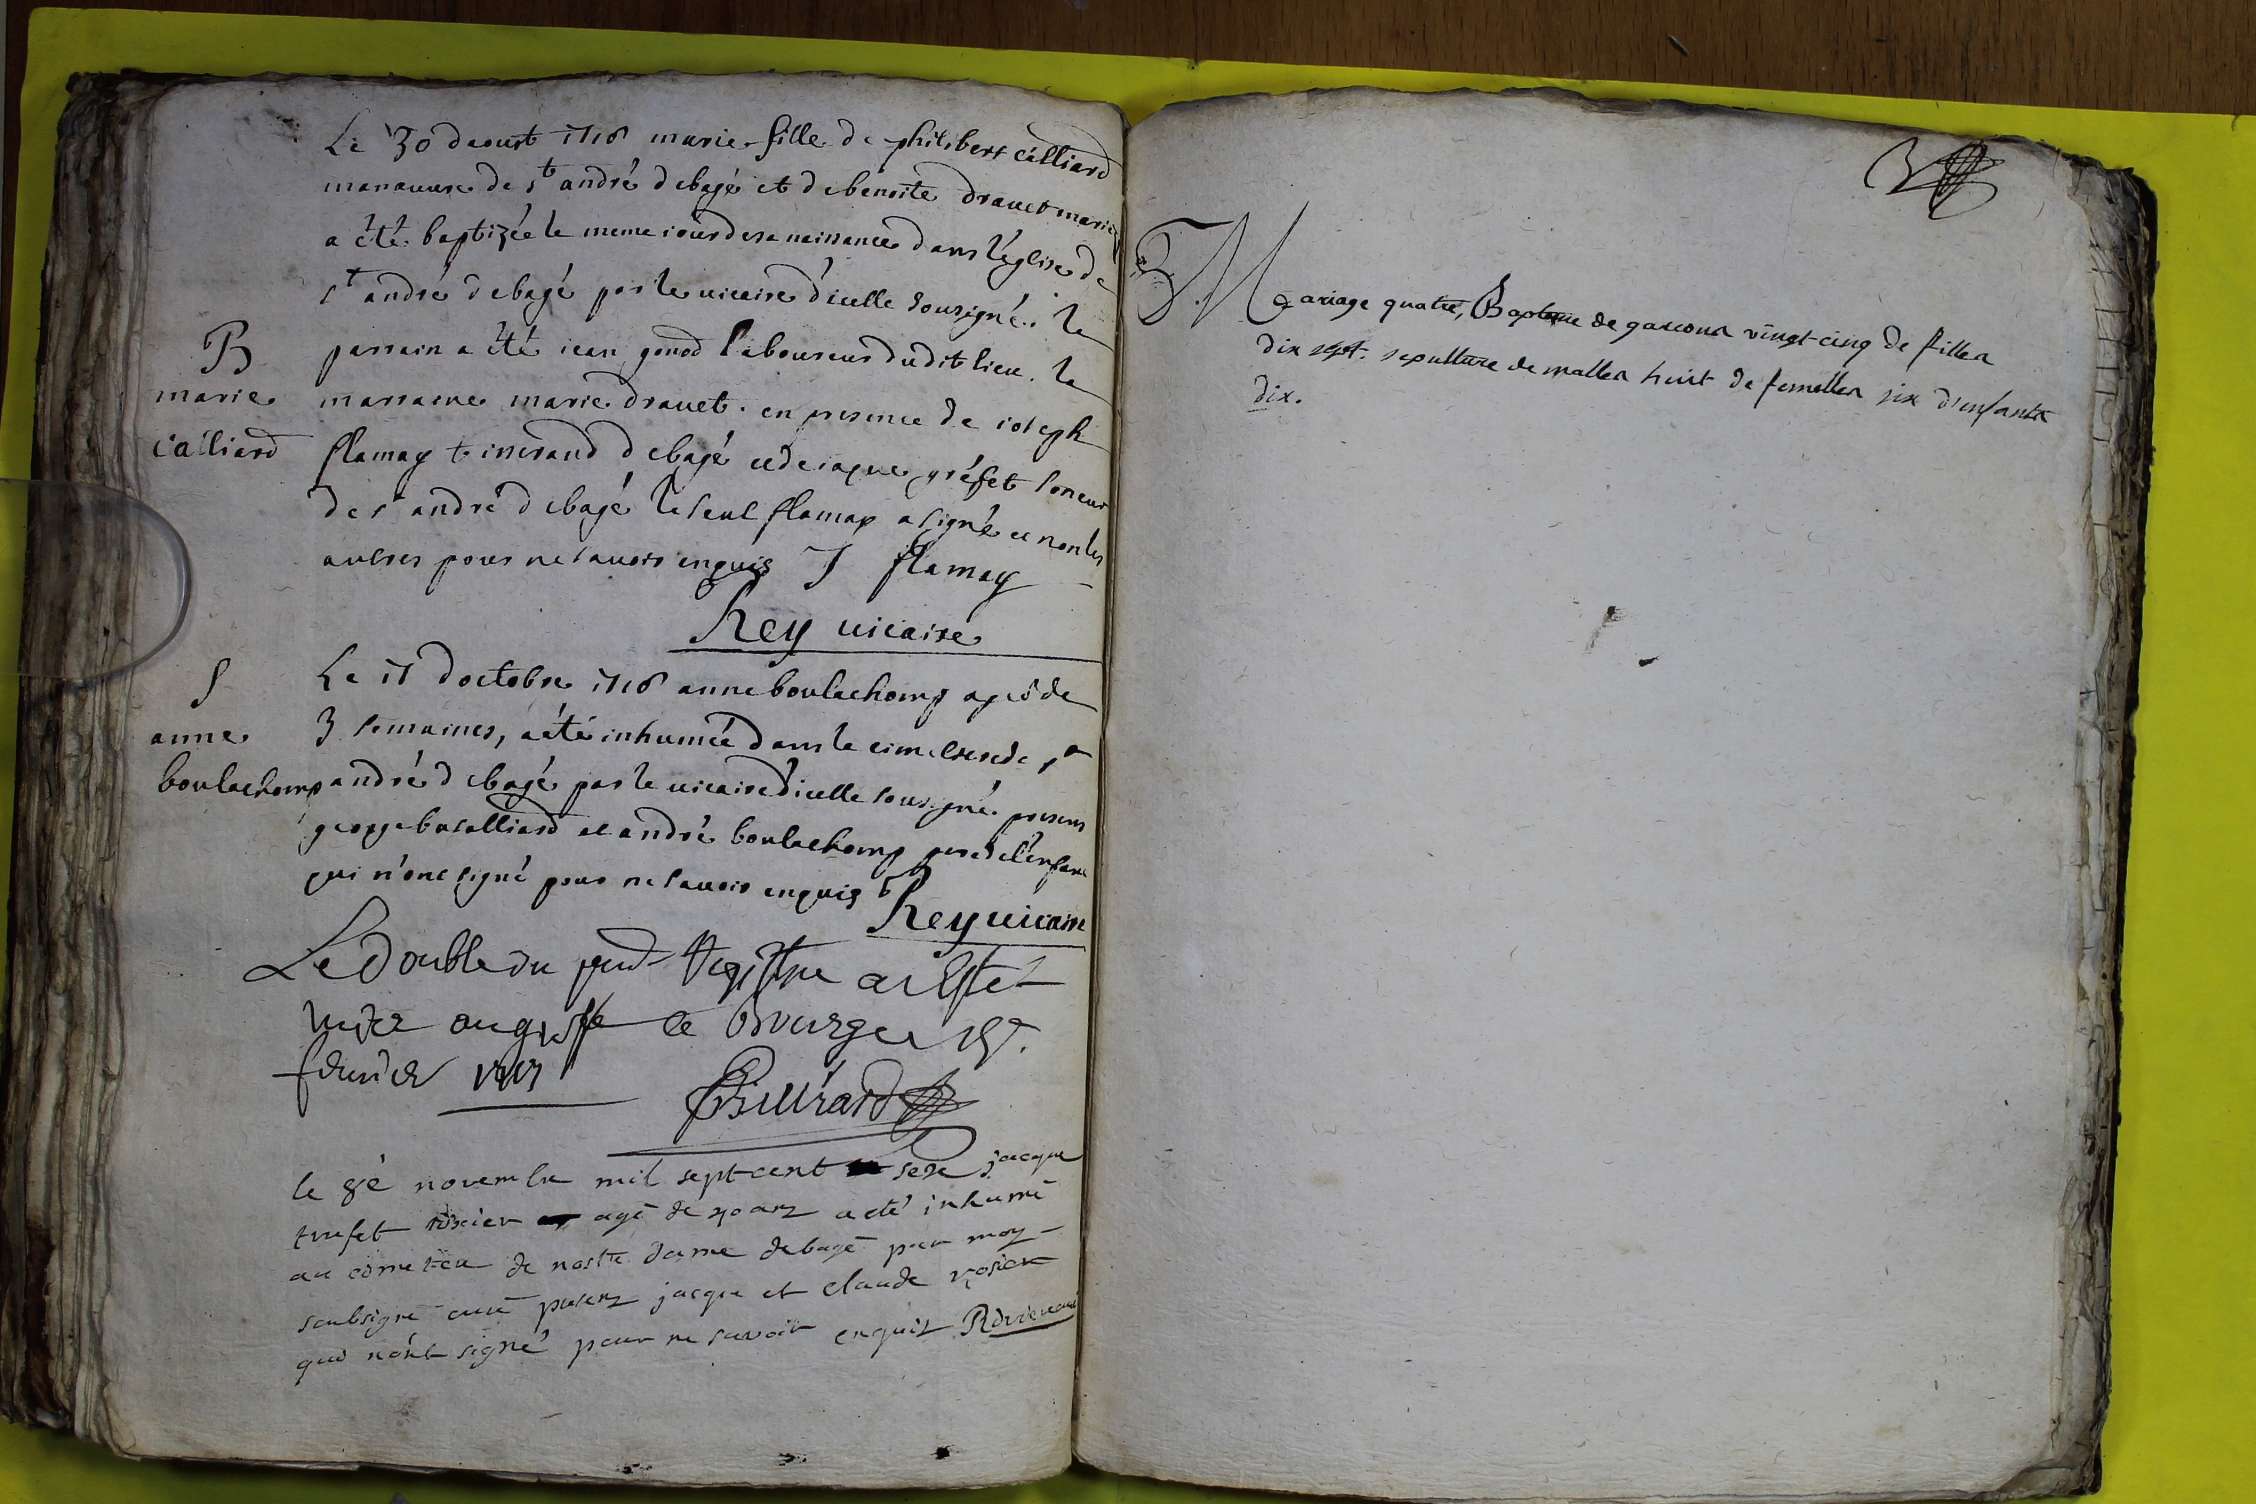 Le 30 daoust 1716 marie fille de philibert calliard
manœuvre de st andré debagé et de benoite drauet mariez
a été baptizée le meme iour de sa naissance dans l'église de
st andré debagé par le uicaire d'icelle sousigné. le
B
parrain a été iean gonod laboureur dudit lieu. la
marie
marraine marie drauet. en presence de ioseph
calliard
flamay tisserand debagé et de iaque préfet soneur
de st andré debagé le seul flamay a signé et non les
autres pour ne sauoir enquis J flamay
Rey uicaire
S
Le 11 doctobre 1716 anne boulachomp ageé de
anne
3 semaines, a été inhumeé dans le cimetiere de st
boulachomp
andré debagé par le uicaire d'icelle sousigné presens
george bucalliard et andré boulachomp pere de l'enfant
qui n'ont signé pour ne sauoir enquis Rey uicaire
Le double du pnt Registre a esté
mise au greffe de Bourg ce 15e
feurier 1717
le 8e novembre mil sept cent seze jacque
trufet rosier agé de 40 anz a eté inhumé
au cimetiere de nostre dame debagé par moy
soubsigné curé presenz jacque et claude rosier
qui n'ont signé pour ne savoir enquiz
Mariage quatre, Baptême de garcons vingt-cinq de filles
dix sept. sepulture de malles huit de femelles six d'enfants
dix.